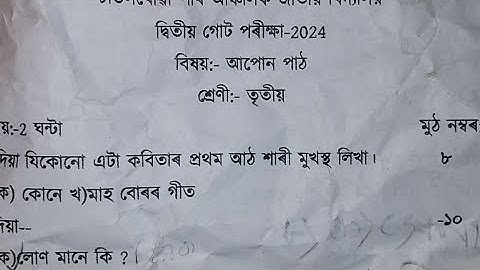 দ্বিতীয় গোট পৰীক্ষা-2024
বিষয়:- আপোন পাঠ
শ্ৰেণী:- তৃতীয়
য়:-2 ঘন্টা মুঠ নম্বৰ
দিয়া যিকোনো এটা কবিতাৰ প্ৰথম আঠ শাৰী মুখস্থ লিখা। ৮
ক) কোনে খ)মাহ বোৰৰ গীত
দিয়া-- -১০
ক)লোণ মানে কি ?